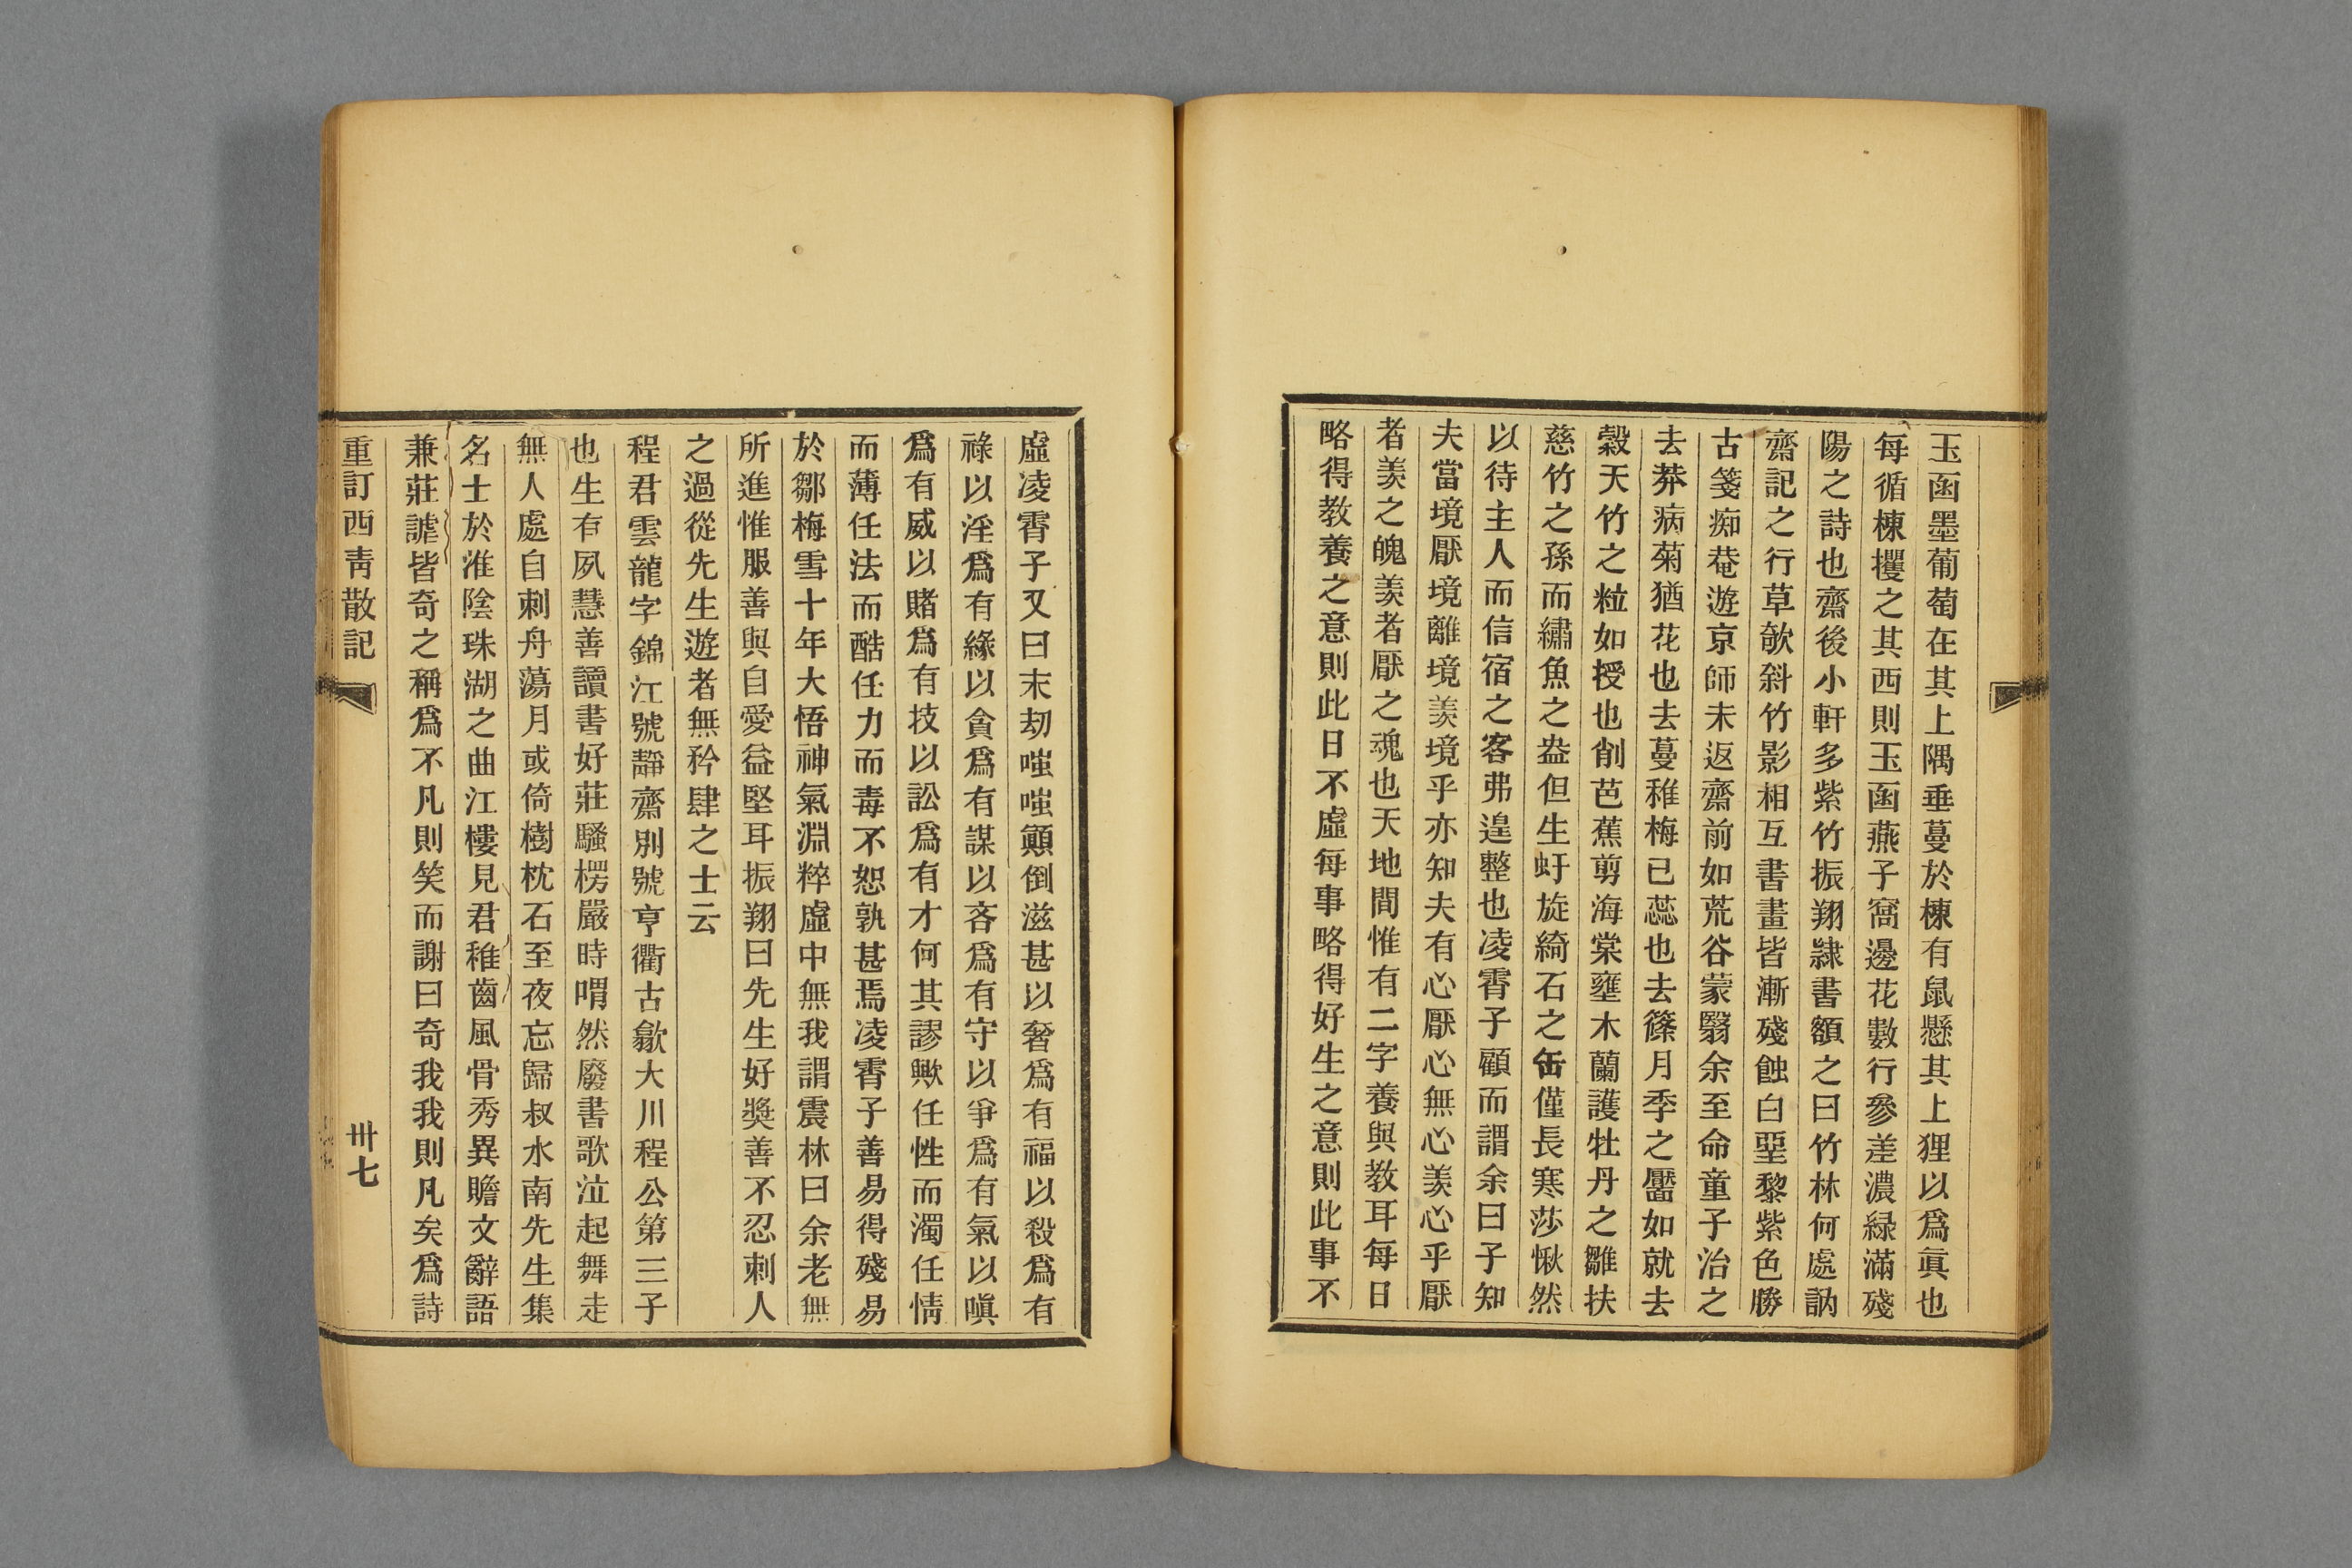 玉函墨葡萄在其上隅垂蔓於棟有鼠懸其上狸以爲眞也
每循棟攫之其西則玉函燕子窩邊花數行參差濃緑滿殘
陽之詩也齋後小軒多紫竹振翔隷書額之曰竹林何處訥
齋記之行草欹斜竹影相互書畫皆漸殘蝕白堊黎紫色勝
古箋痴菴遊京師未返齋前如荒谷蒙翳余至命童子治之
去莽病菊猶花也去蔓稚梅已蕊也去篠月季之靨如就去
縠天竹之粒如授也削芭蕉剪海棠壅木蘭護牡丹之雛扶
慈竹之孫而繡魚之盎但生虷旋綺石之缶僅長寒莎愀然
以待主人而信宿之客弗遑整也凌霄子顧而謂余曰子知
夫當境厭境離境羨境乎亦知夫有心厭心無心羨心乎厭
者羨之魄羨者厭之魂也天地間惟有二字養與教耳每日
略得教養之意則此日不虛每事略得好生之意則此事不
虛凌霄子又曰末劫嗤嗤顚倒滋甚以奢爲有福以殺爲有
祿以淫爲有緣以貪爲有謀以吝爲有守以爭爲有氣以嗔
爲有威以賭爲有技以訟爲有才何其謬歟任性而濁任情
而薄任法而酷任力而毒不恕孰甚焉凌霄子善易得殘易
於鄒梅雪十年大悟神氣淵粹虛中無我謂震林曰余老無
所進惟服善與自愛益堅耳振翔曰先生好獎善不忍刺人
之過從先生遊者無矜肆之士云
程君雲龍字錦江號靜齋別號亨衢古歙大川程公第三子
也生有夙慧善讀書好莊騷楞嚴時喟然廢書歌泣起舞走
無人處自刺舟蕩月或倚樹枕石至夜忘歸叔水南先生集
名士於淮陰珠湖之曲江樓見君稚齒風骨秀異贍文辭語
兼莊謔皆奇之稱爲不凡則笑而謝曰奇我我則凡矣爲詩
重訂西青散記
卅七